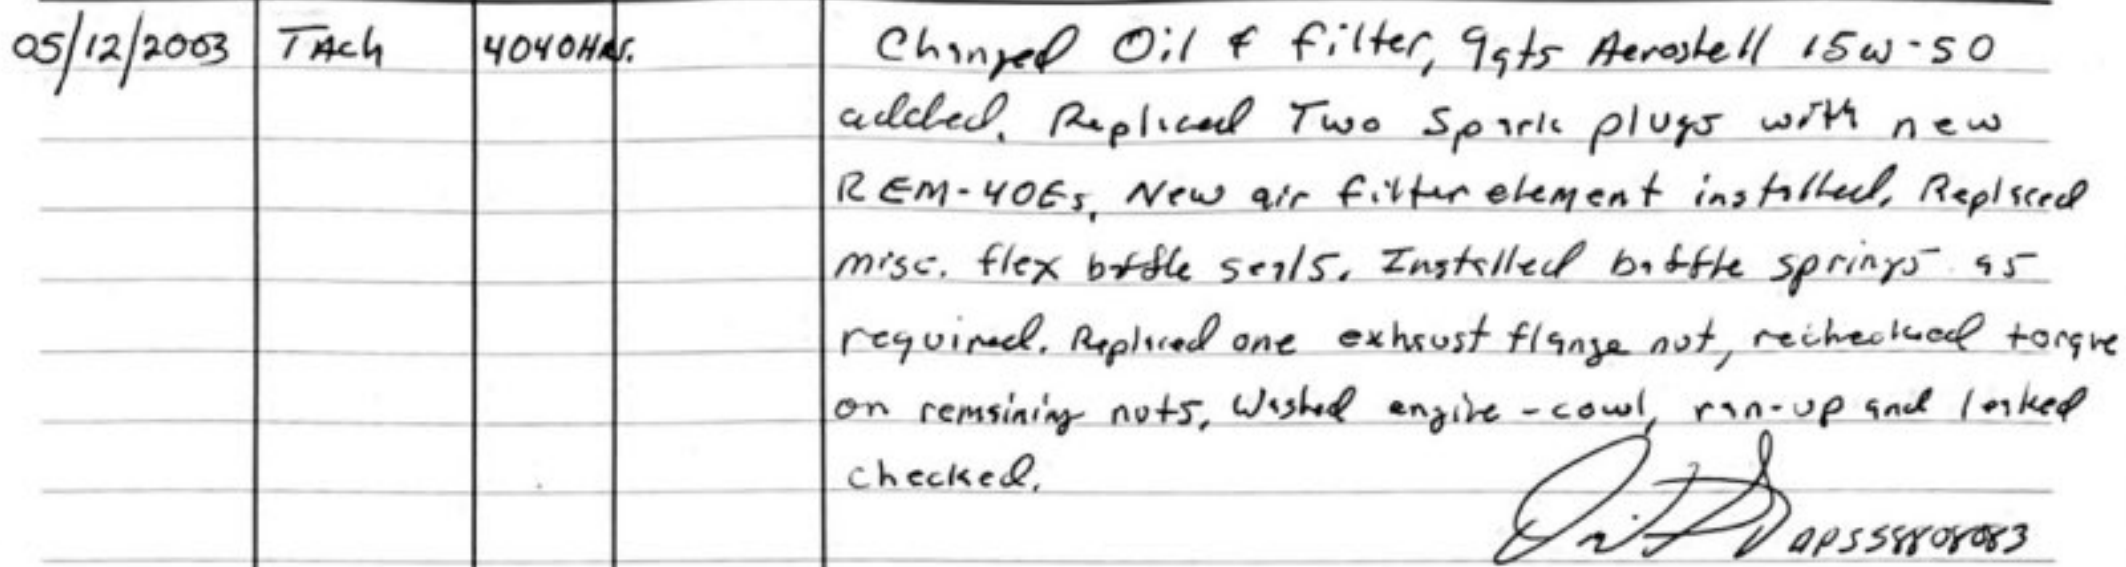 05/12/2003 TAch 4040HRS. Changed Oil & filter, 9qts Aeroshell 15w-50
added. Replaced Two Spark plugs with new
REM-40Es. New air filter element installed. Replaced
misc. flex baffle seals. Installed baffle springs as
required. Replaced one exhaust flange nut, rechecked torque
on remaining nuts, Washed engine-cowl, ran-up and leaked
checked.